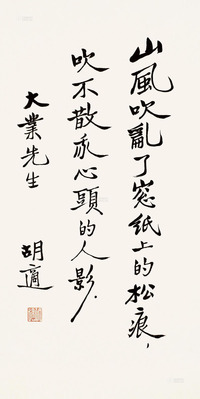 山風吹亂了窓紙上的松痕，
吹不散我心頭的人影．
大業先生
胡適